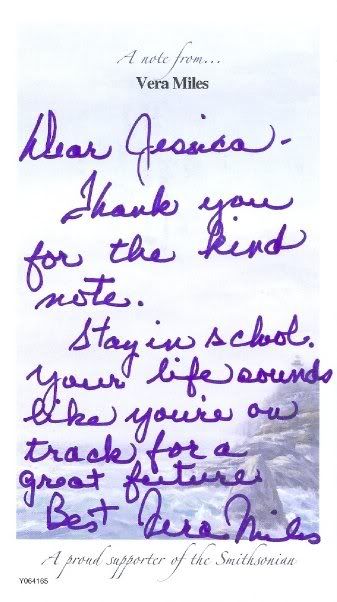 A note from...
Vera Miles
Dear Jessica -
Thank you
for the kind
note.
Stay in school.
Your life sounds
like you're on
track for a
great future.
Best Vera Miles
A proud supporter of the Smithsonian
Y064165